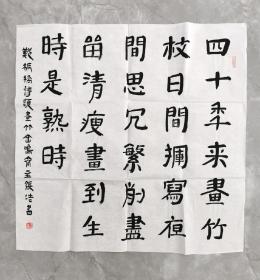 四十秊来畫竹
枝日間揮寫夜
間思冗繁削盡
畱清瘦畫到生
時是熟時
鄭板橋詩題畫竹